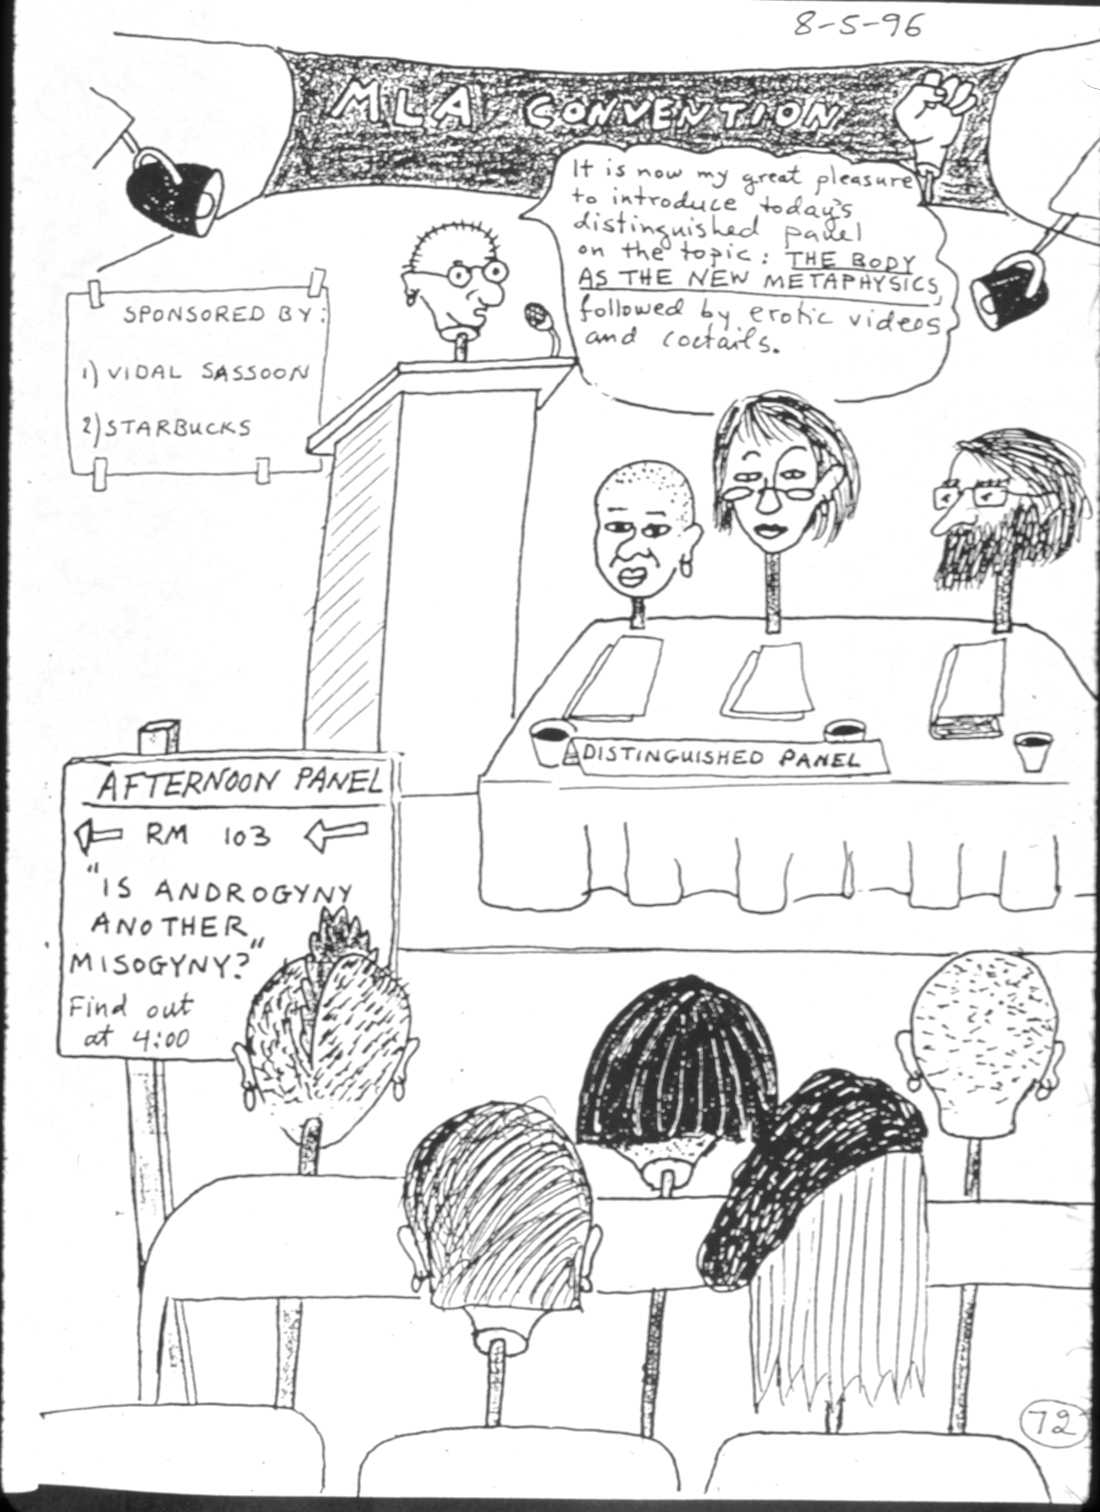 8-5-96
MLA CONVENTION
It is now my great pleasure
to introduce today's
distinguished panel
on the topic: THE BODY
AS THE NEW METAPHYSICS,
followed by erotic videos
and coctails.
SPONSORED BY:
1) VIDAL SASSOON
2) STARBUCKS
DISTINGUISHED PANEL
AFTERNOON PANEL
RM 103
"IS ANDROGYNY
ANOTHER
MISOGYNY?"
Find out
at 4:00
72